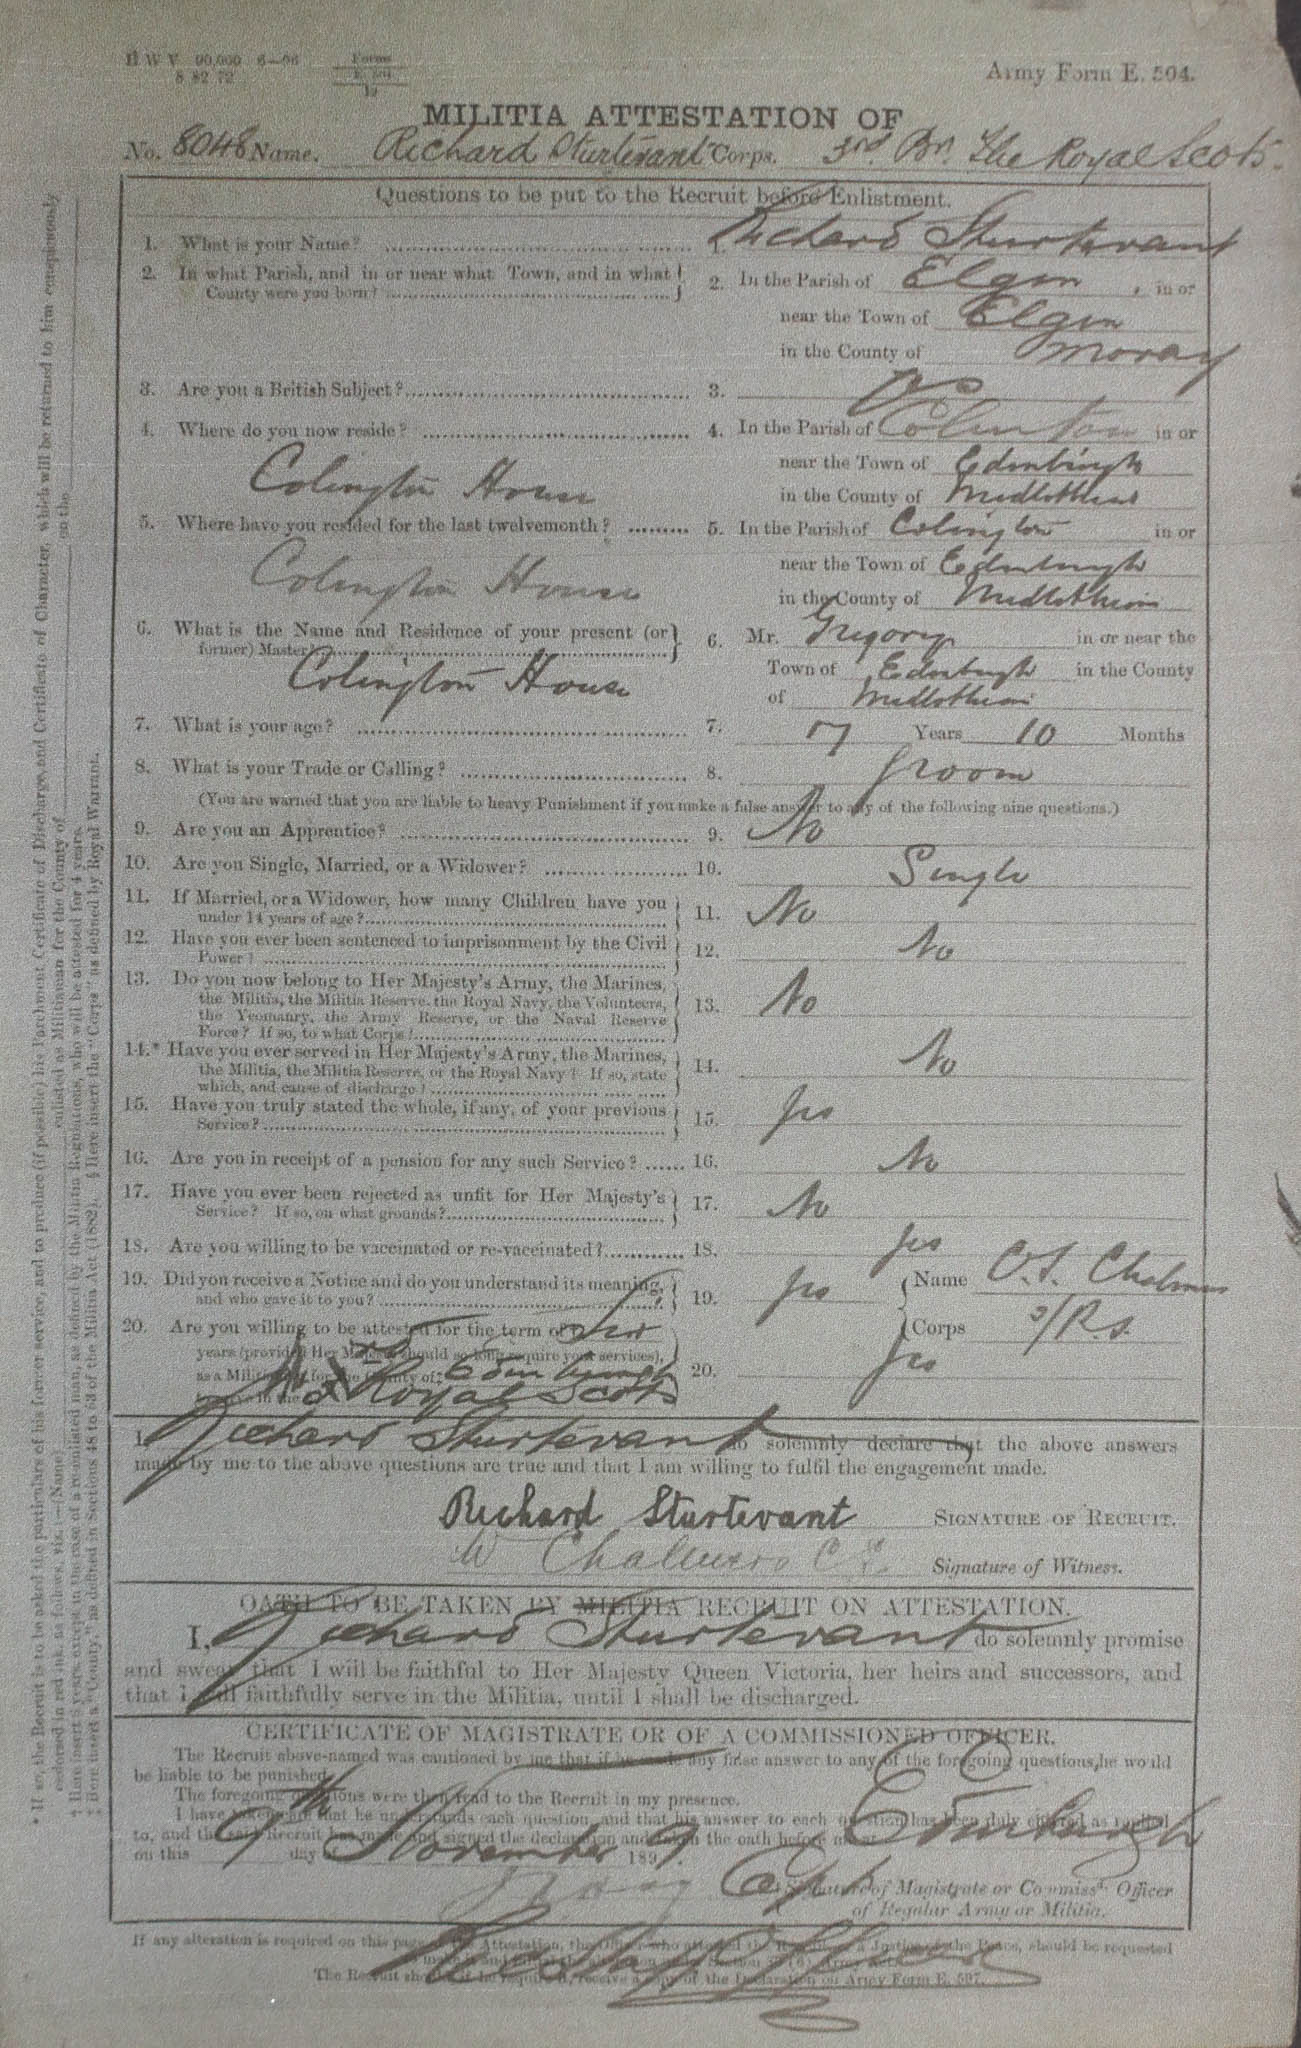 H W V 90,000 6—96
8 82 72
Forms
E. 504
Army Form E. 504.
MILITIA ATTESTATION OF
No. 8048 Name. Richard Sturtevant Corps. 3rd. Bn. The Royal Scots.
Questions to be put to the Recruit before Enlistment.
1. What is your Name? 1. Richard Sturtevant
2. In what Parish, and in or near what Town, and in what County were you born? 2. In the Parish of Elgin, in or
near the Town of Elgin
in the County of Moray
3. Are you a British Subject? 3. Yes
4. Where do you now reside? 4. In the Parish of Colinton in or
near the Town of Edinburgh
Colington House in the County of Midlothian
5. Where have you resided for the last twelvemonth? 5. In the Parish of Colington in or
Colington House near the Town of Edinburgh
in the County of Midlothian
6. What is the Name and Residence of your present (or former) Master? 6. Mr. Gregory in or near the
Colington House Town of Edinburgh in the County
of Midlothian
7. What is your age? 7. 17 Years 10 Months
8. What is your Trade or Calling? 8. Groom
(You are warned that you are liable to heavy Punishment if you make a false answer to any of the following nine questions.)
9. Are you an Apprentice? 9. No
10. Are you Single, Married, or a Widower? 10. Single
11. If Married, or a Widower, how many Children have you
under 14 years of age? 11. No
12. Have you ever been sentenced to imprisonment by the Civil
Power? 12. No
13. Do you now belong to Her Majesty's Army, the Marines,
the Militia, the Militia Reserve, the Royal Navy, the Volunteers,
the Yeomanry, the Army Reserve, or the Naval Reserve
Force? If so, to what Corps? 13. No
14.* Have you ever served in Her Majesty's Army, the Marines,
the Militia, the Militia Reserve, or the Royal Navy? If so, state
which, and cause of discharge? 14. No
15. Have you truly stated the whole, if any, of your previous
Service? 15. Yes
16. Are you in receipt of a pension for any such Service? 16. No
17. Have you ever been rejected as unfit for Her Majesty's
Service? If so, on what grounds? 17. No
18. Are you willing to be vaccinated or re-vaccinated? 18. Yes
19. Did you receive a Notice and do you understand its meaning,
and who gave it to you? 19. Yes Name Chalmers
Corps 3/R.S.
20. Are you willing to be attested for the term of Six
years (provided Her Majesty should so long require your services),
as a Militiaman for the County of Edinburgh
Royal Scots 20. Yes
I, Richard Sturtevant do solemnly declare that the above answers
made by me to the above questions are true and that I am willing to fulfil the engagement made.
Richard Sturtevant SIGNATURE OF RECRUIT.
W Chalmers Signature of Witness.
OATH TO BE TAKEN BY MILITIA RECRUIT ON ATTESTATION.
I, Richard Sturtevant do solemnly promise
and swear that I will be faithful to Her Majesty Queen Victoria, her heirs and successors, and
that I will faithfully serve in the Militia, until I shall be discharged.
CERTIFICATE OF MAGISTRATE OR OF A COMMISSIONED OFFICER.
The Recruit above-named was cautioned by me that if he made any false answer to any of the foregoing questions, he would
be liable to be punished.
The foregoing questions were then read to the Recruit in my presence.
I have taken care that he understands each question, and that his answer to each question has been duly entered as replied
to, and the said Recruit has made and signed the declaration and taken the oath before me at Edinburgh
on this 9th day of November 1897.
Capt
Signature of Magistrate or Commissd. Officer
of Regular Army or Militia.
If any alteration is required on this page of the Attestation, the Officer who attested the Recruit, or a Justice of the Peace, should be requested
The Recruit should, if he require it, receive a copy of the Declaration on Army Form E. 507.
* If so, the Recruit is to be asked the particulars of his former service, and to produce (if possible) his Parchment Certificate of Discharge, and Certificate of Character, which will be returned to him conspicuously
endorsed in red ink, as follows, viz.:—(Name) enlisted as Militiaman for the County of on the
† Here insert 6 years, except in the case of a re-enlisted man, as defined by the Militia Regulations, who will be attested for 4 years.
‡ Here insert a "County," as defined in Sections 48 to 53 of the Militia Act (1882). § Here insert the "Corps" as defined by Royal Warrant.